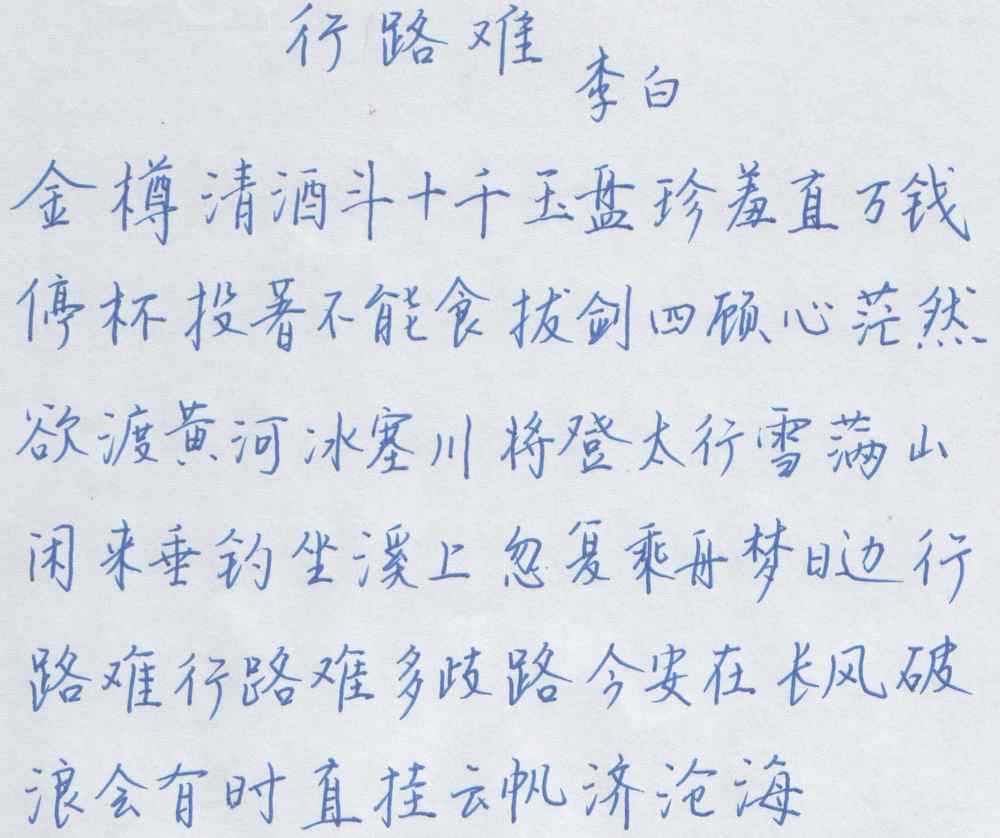 行路难
李白
金樽清酒斗十千玉盘珍羞直万钱
停杯投著不能食拔剑四顾心茫然
欲渡黄河冰塞川将登太行雪满山
闲来垂钓坐溪上忽复乘舟梦日边行
路难行路难多歧路今安在长风破
浪会有时直挂云帆济沧海